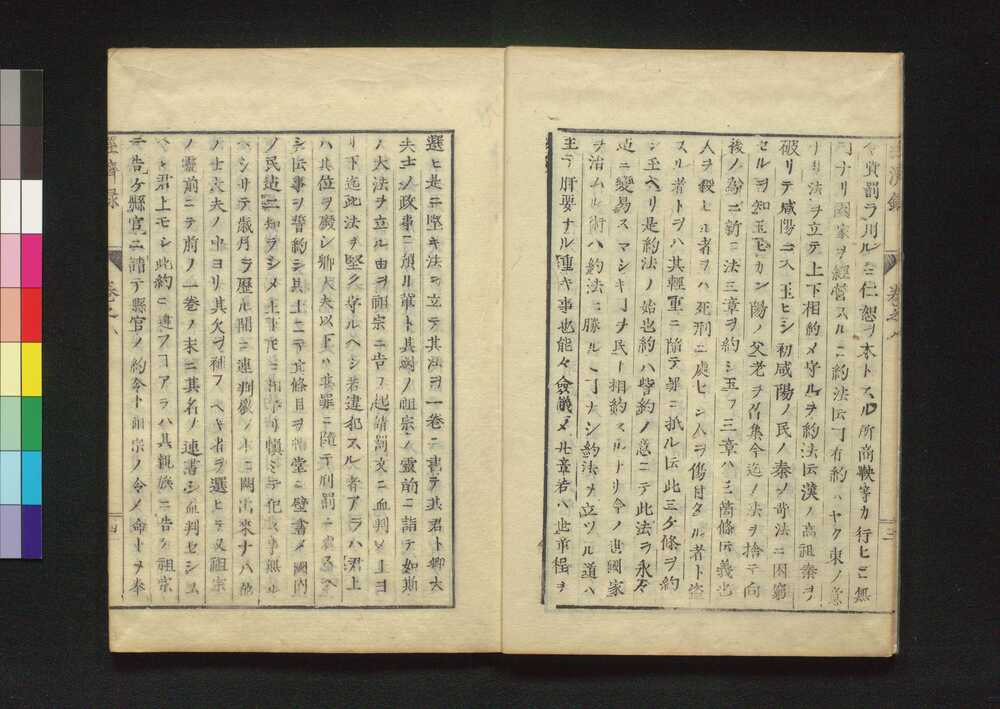 ノ賞罰ヲ用ルニ仁恕ヲ本トスル所商鞅等カ行ヒニ無
ナリ國家ヲ經營スルニ約法云ヿ有約ハヤク束ノ意
ナリ法ヲ立テ上下相約メ守ルヲ約法云漢ノ高祖秦ヲ
破リテ咸陽ニ入玉ヒシ初咸陽ノ民ノ秦ノ苛法ニ困窮
セルヲ知玉ヒカン陽ノ父老ヲ召集今迄ノ法ヲ捨テ向
後ノ為ニ新ニ法三章ヲ約シ玉フ三章ハ三箇條云義也
人ヲ殺セル者ヲハ死刑ニ處ヒシ人ヲ傷付タル者ト盗
スル者トヲハ其輕重ニ隨テ罪ニ抵ル云此三ケ條ヲ約
シ玉ヘリ是約法ノ始也約ハ皆約ノ意ニテ此法ラ永々
迄ニ變易スマシキヿナ民ト相約スルナリ今ノ世國家
ヲ治ムル術ハ約法ニ勝ルヿナシ約法ヲ立ツル道ハ
主テ肝要ナル重キ事也能々僉議メ其章若ハ此章程ヲ
經濟録 卷之八 三
選ヒ是ニ堅キ法ヲ立テ其法ヲ一卷ニ書テ其君ト卿大
夫士ノ政事ニ預ル輩ト其國ノ祖宗ノ靈前ニ詣テ如斯
ノ大法ヲ立ル由ヲ祖宗ニ告ケ起請罰文ニ血判メ上ヨ
リ下迄此法ヲ堅ク守ルヘシ若違犯スル者アラハ君上
ハ其位ヲ廢シ卿大夫以下ハ其罪ニ隨テ刑罰ニ處ス
シ云事ヲ誓約シ其上ニテ其條目ヲ堂ニ壁書メ國内
ノ民迄ニ知ラシメ上下
ヘシサテ歳月ラ歴ル間ニ連判
ノ士大夫ノ中ヨリ其欠ヲ補フヘキ者ヲ選ヒテ又祖宗
ノ靈前ニテ前ノ一卷ノ末ニ其名ノ連書シ血判セシム
ヘシ君上モシ此約ニ違フヿアラハ其親族ニ告ケ祖宗
ニ告ケ縣官ニ請テ縣官ノ約令ト祖宗ノ令ノ命トヲ奉
經濟録 卷之八 四